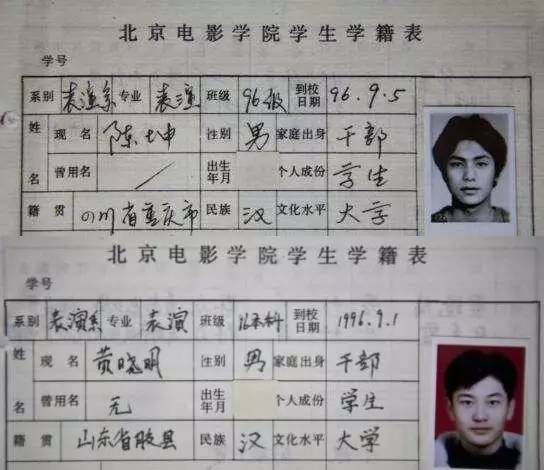 北京电影学院学生学籍表
学号
系别 表演系 专业 表演 班级 96级 到校日期 96.9.5
姓名 现名 陈坤 性别 男 家庭出身 干部
曾用名 / 出生年月 个人成份 学生
籍贯 四川省重庆市 民族 汉 文化水平 大学
北京电影学院学生学籍表
学号
系别 表演系 专业 表演 班级 96本科 到校日期 1996.9.1
姓名 现名 黄晓明 性别 男 家庭出身 干部
曾用名 无 出生年月 个人成份 学生
籍贯 山东省 县 民族 汉 文化水平 大学